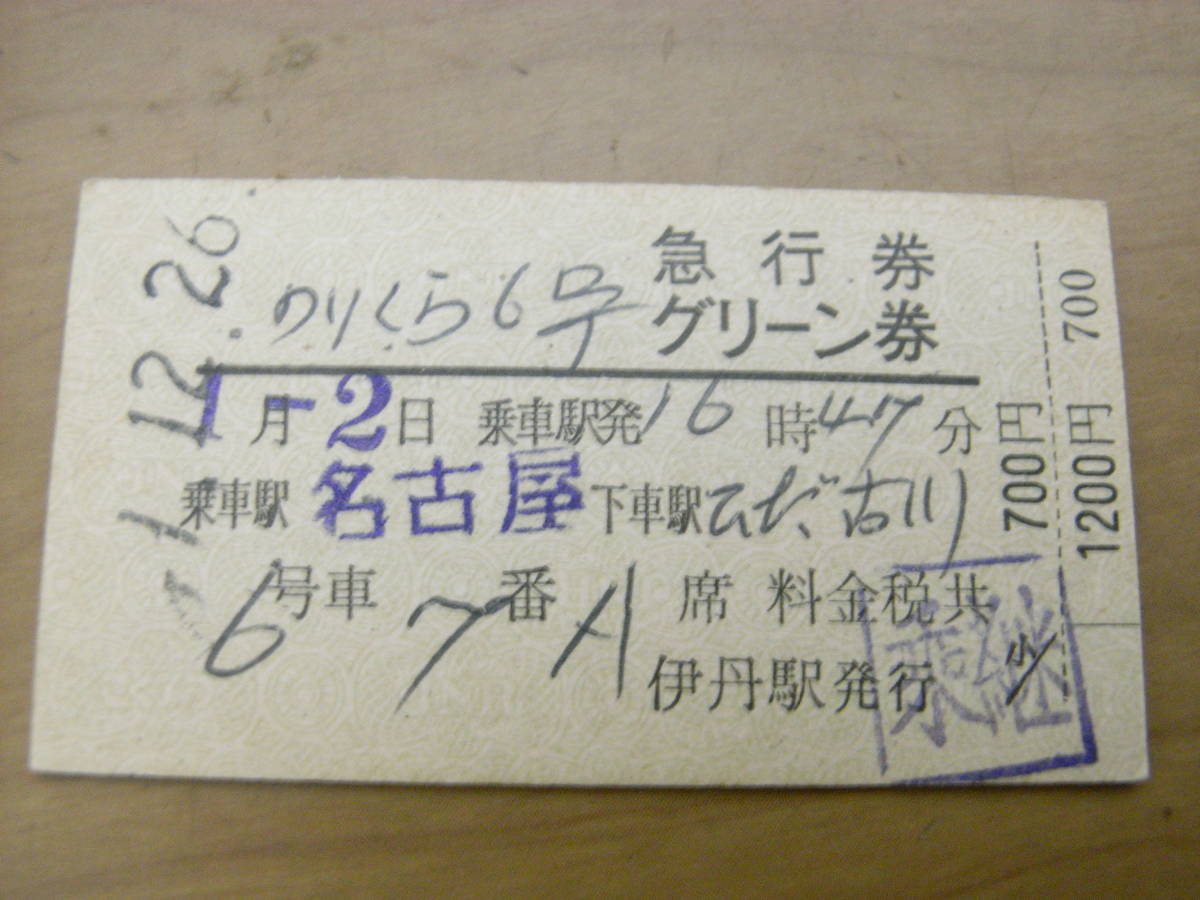 急行券
のりくら6号 グリーン券
1月-2日 乗車駅発16時47分
乗車駅 名古屋 下車駅ひだ古川
6号車 7番 A席 料金税共
伊丹駅発行
小
乗継
700円
1200円
700
12.26